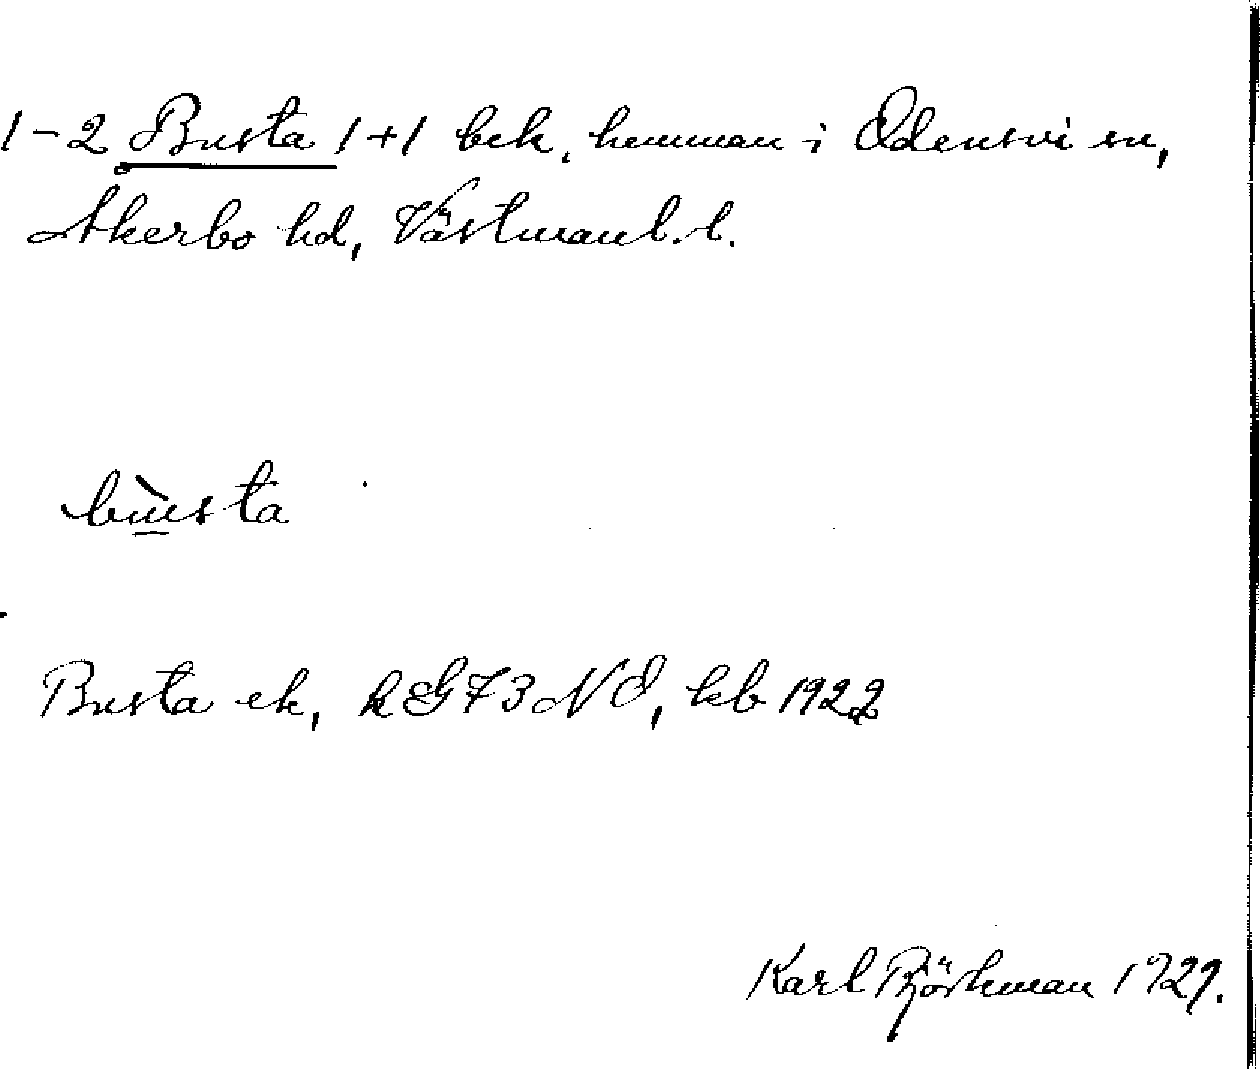 1-2 Busta 1+1 bek. hemman i Odensvi sn,
Åkerbo hd, Västmanl. l.
bùsta
Busta ek, k G73 NO, kb 1922
Karl Björkman 1929.